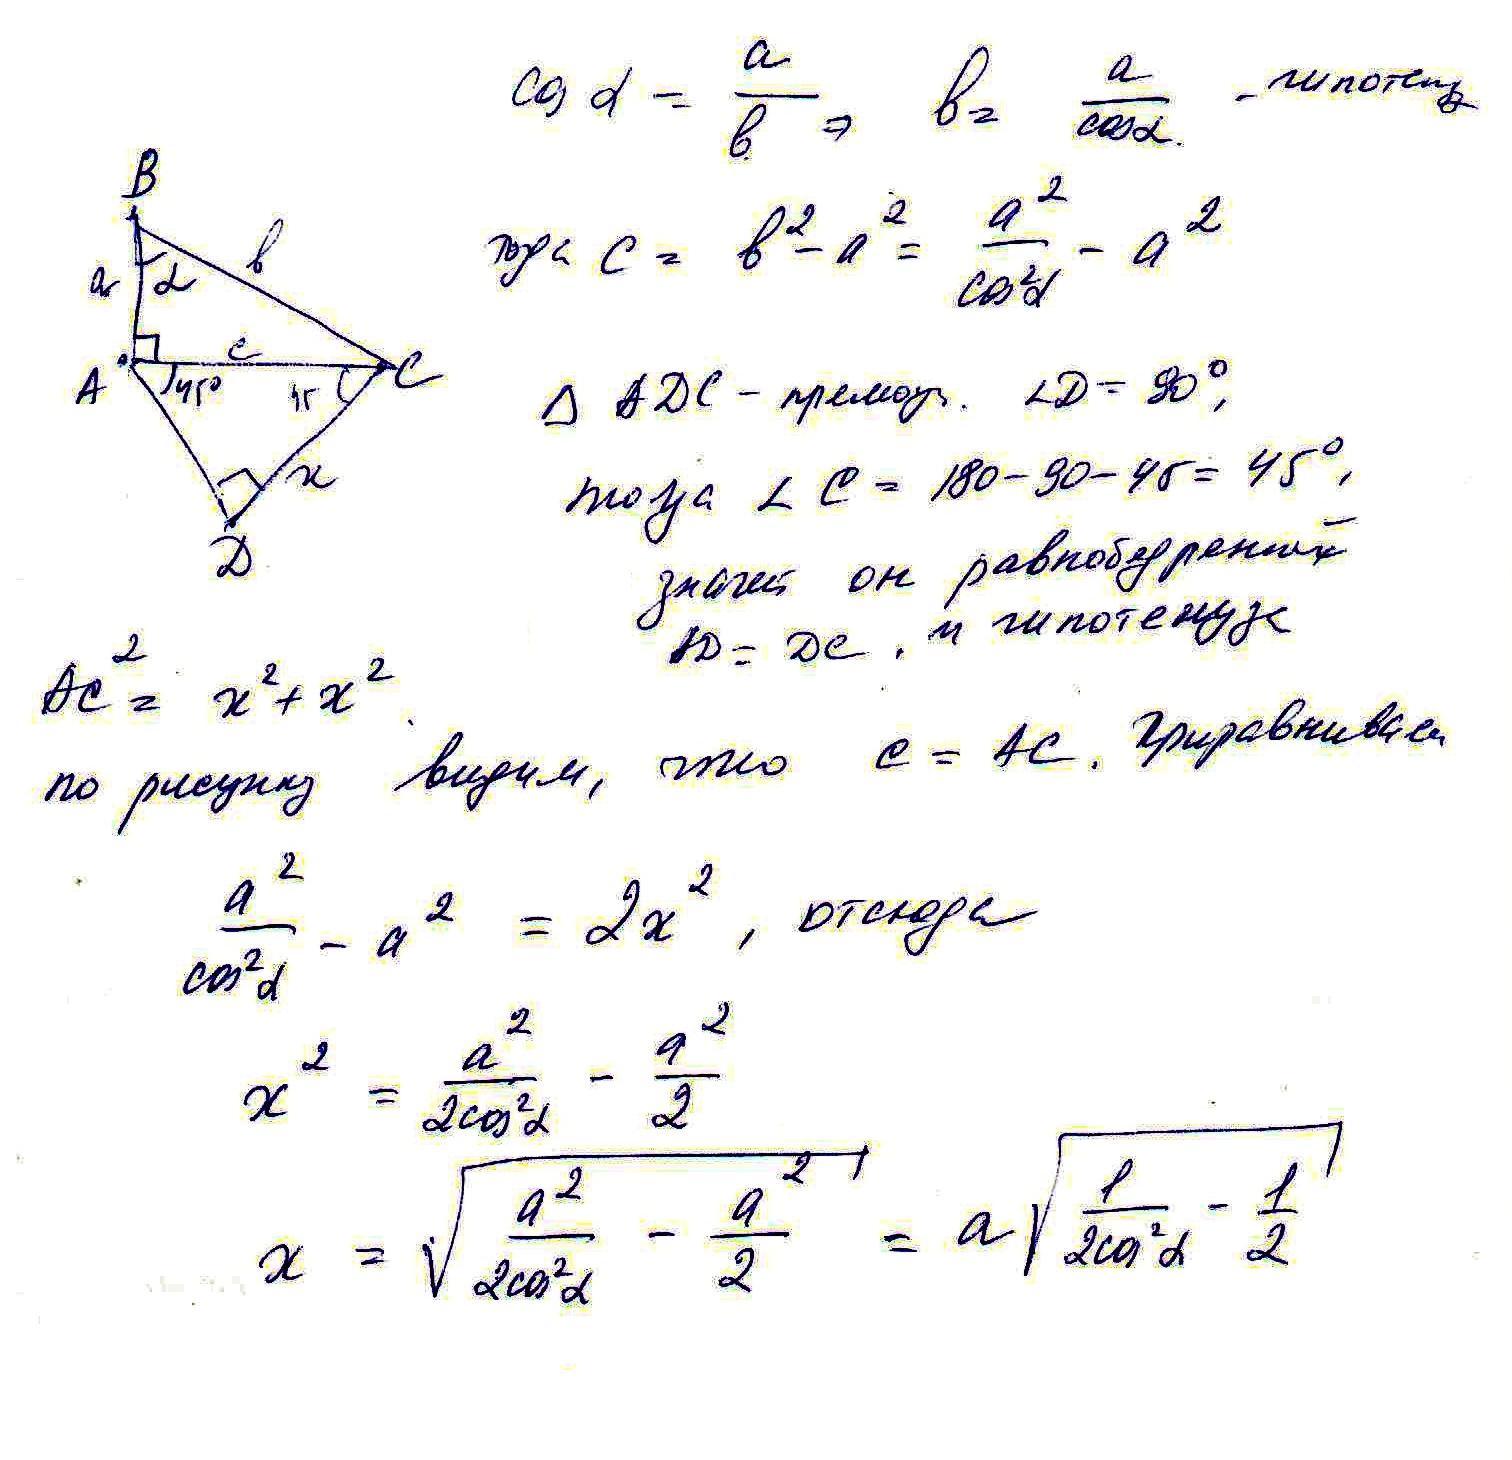 cos α = a/в ⇒ в = a/cosα. - гипотенуз
B
a α в
A c C
45° 45
x
D
тогда c = в² - a² = a²/cos²α - a²
Δ ADC - прямоуг. ∠D = 90°,
тогда ∠ C = 180 - 90 - 45 = 45°,
значит он равнобедренный
AD = DC, и гипотенуза
AC² = x² + x²
по рисунку видим, что c = AC. Приравниваем
a²/cos²α - a² = 2x², отсюда
x² = a²/2cos²α - a²/2
x = √(a²/2cos²α - a²/2) = a√(1/2cos²α - 1/2)